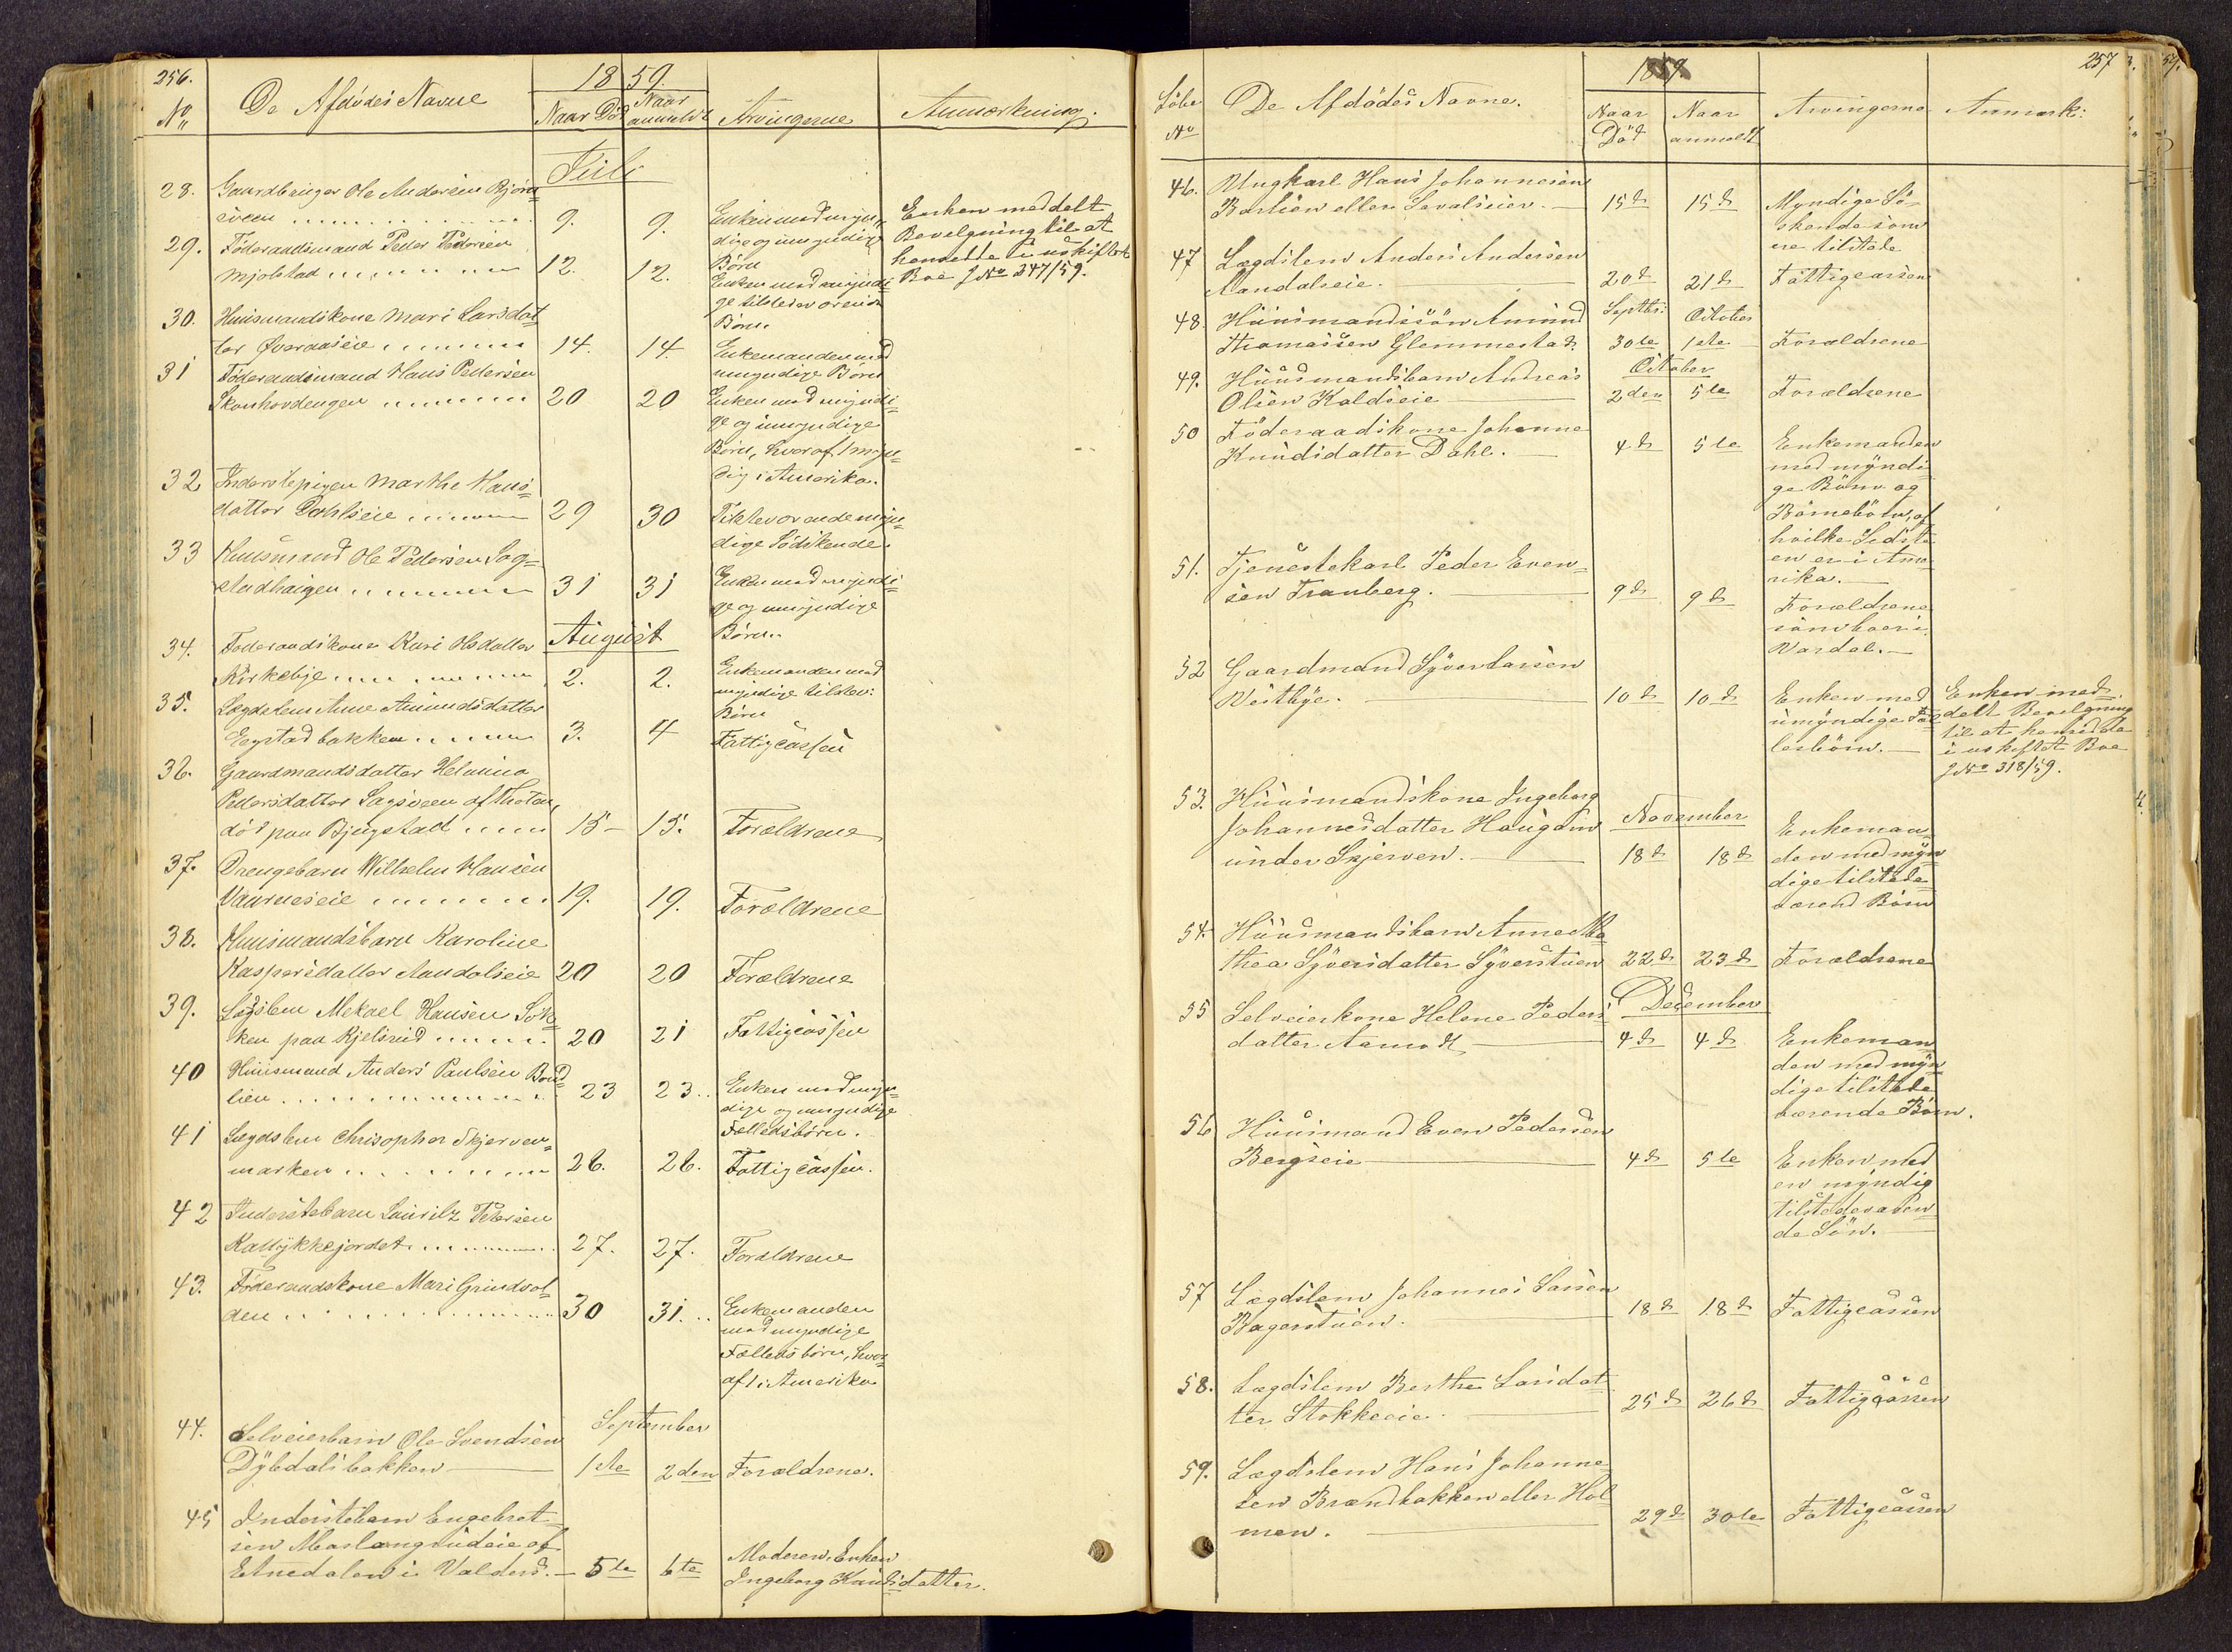 256.
1859.
No
De Afdödes Navne
Naar Död
Naar anmeldt
Arvingerne
Anmærkning.
Juli
28. Gaardbruger Ole Andersen Bjørn=
sveen 9. 9. Enken med myn=
dige og umyndige
Børn
Enken meddelt
Bevilgning til at
hensidde i uskiftet
Boe J No 347/59.
29. Föderaadsmand Peder Pedersen
Mjølstad 12. 12. Enken med myndi=
ge tilstedeværende
Børn.
30. Huusmandskone Mari Larsdat=
ter Øveraaseie 14. 14. Enkemanden med
umyndige Børn
31 Föderaadsmand Hans Pedersen
Skonhovdengen 20 20 Enken med myndi=
ge og umyndige
Børn, hvoraf 1 myn=
dig i Amerika.
32 Inderstepigen Marthe Hans=
datter Dahlseie 29 30 Tilstedeværende myn=
dige Södskende.
33 Huusmand Ole Pedersen Sog=
stadhaigen 31 31 Enken med myndi=
ge og umyndige
Børn.
August
34. Föderaadskone Kari Olsdatter
Kirkebye 2. 2. Enkemanden med
myndige tilstev:
Børn
35. Lægdslem Anne Amundsdatter
Eegstadbakken 3. 4 Fattigcassen
36. Gaardmandsdatter Helmine
Pedersdatter Sagsveen af Thoten,
død paa Bjugstad 15 15. Forældrene
37. Drengebarn Wilhelm Hansen
Vaarneseie 19. 19. Forældrene
38. Huusmandsbarn Karoline
Kaspersdatter Aandalseie 20 20 Forældrene
39. Lægdslem Mekael Hansen Sok=
ken paa Kjelsrud 20 21 Fattigcassen
40 Huusmand Anders Paulsen Bond=
lien 23 23. Enken med myn=
dige og umyndige
Fælledsbørn.
41 Lægdslem Chrisopher Skjerven=
marken 26. 26. Fattigcassen.
42 Inderstebarn Lauritz Petersen
Kalrykkejordet 27. 27. Forældrene
43. Föderaadskone Mari Grindvol=
den 30 31. Enkemanden
med myndige
Fælledsbørn, hvor=
af 1 i Amerika
September
44. Selveierbarn Ole Svendsen
Dybdalsbakken 1ste 2den Forældrene.
45 Inderstebarn Engebret=
sen Maslangrudeie af
Etnedalen i Valders. 5te 6te Moderen, Enken
Ingeborg Knudsdatter.
257
1859.
Löbe No
De Afdödes Navne.
Naar Död
Naar anmeldt
Arvingerne
Anmærk:
46. Ungkarl Hans Johannesen
Barlien eller Sevalseier. 15d 15d Myndige Sö-
skende som
ere tilstede
47 Lægdslem Anders Andersen
Aandalseie. 20d 21d Fattigcassen
48. Huusmandssön Amund
Thomassen Glemmestad. Septbr: 30te October 1ste Forældrene
October
49. Huusmandsbarn Andreas
Olsen Koldseie 2den 5te Forældrene
50 Föderaadskone Johanne
Knudsdatter Dahl. 4d 5te Enkemanden
med myndi
ge Börn og
Börnebörn, af
hvilke Sidste
en er i Ame
rika.
51. Tjenestekarl Peder Even=
sen Tranberg. 9d 9d Forældrene
som boer i
Vardal.
52 Gaardmand Syver Larsen
Westbye. 10d 10d Enken med
umyndige Fæl=
lesbörn.
Enken med=
delt Bevilgning
til at hensidde
i uskiftet Boe
J No 318/59.
53. Huusmandskone Ingeborg
Johannesdatter Haugom
under Skjerven.
November
18d 18d Enkeman=
den med myn
dige tilstede
værend Börn
54. Huusmandsbarn Anne Ma=
thea Syversdatter Syverstuen 22d 23d Forældrene
December
55 Selveierkone Helene Peders=
datter Aamodt 4d 4d Enkeman=
den med myn=
dige tilstede
værende Börn.
56 Huusmand Even Pedersen
Bergseie 4d 5te Enken med
en myndig
tilstedeværen=
de Sön.
57 Lægdslem Johannes Larsen
Bagerstuen. 18d 18d Fattigcassen
58. Lægdslem Berthe Larsdat
ter Stokkeeie. 25d 26d Fattigcassen
59. Lægdslem Hans Johanne=
sen Brændbakken eller Hol=
men. 29d 30te Fattigcassen